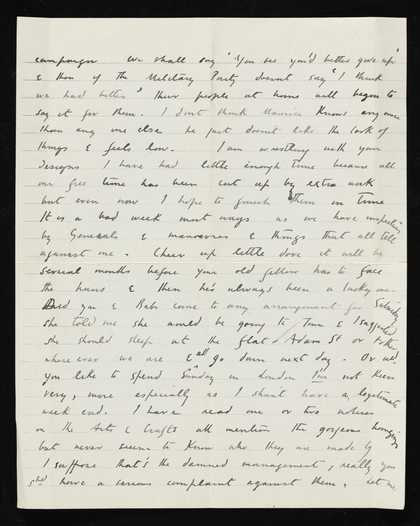 campaign we shall say "You see you'd better give up"
& then if the Military Party doesnt say "I think
we had better" their people at home will begin to
say it for them. I dont think Maurice knows any more
than any one else he just doesnt like the look of
things & feels low. I am wrestling with your
designs I have had little enough time because all
our free time has been cut up by extra work
but even now I hope to finish them in time
It is a bad week most ways as we have inspections
by Generals & manoevres & things that all tell
against me. Cheer up little dove it will be
several months before your old fellow has to face
the huns & then he's always been a lucky one.
Did you & Bab come to any arrangement for Saturday
she told me she would be going to Town & I suggested
she should sleep at the flat / Adam St or
where ever we are & all go down next day. Or wd.
you like to spend Sunday in London I'm not keen
very, more especially as I shant have a legitimate
week end. I have read one or two notices
on the Arts & Crafts all mention the gorgeous hangings
but never seem to know who they are made by
I suppose that's the damned management, really you
shd have a serious complaint against them. Let me